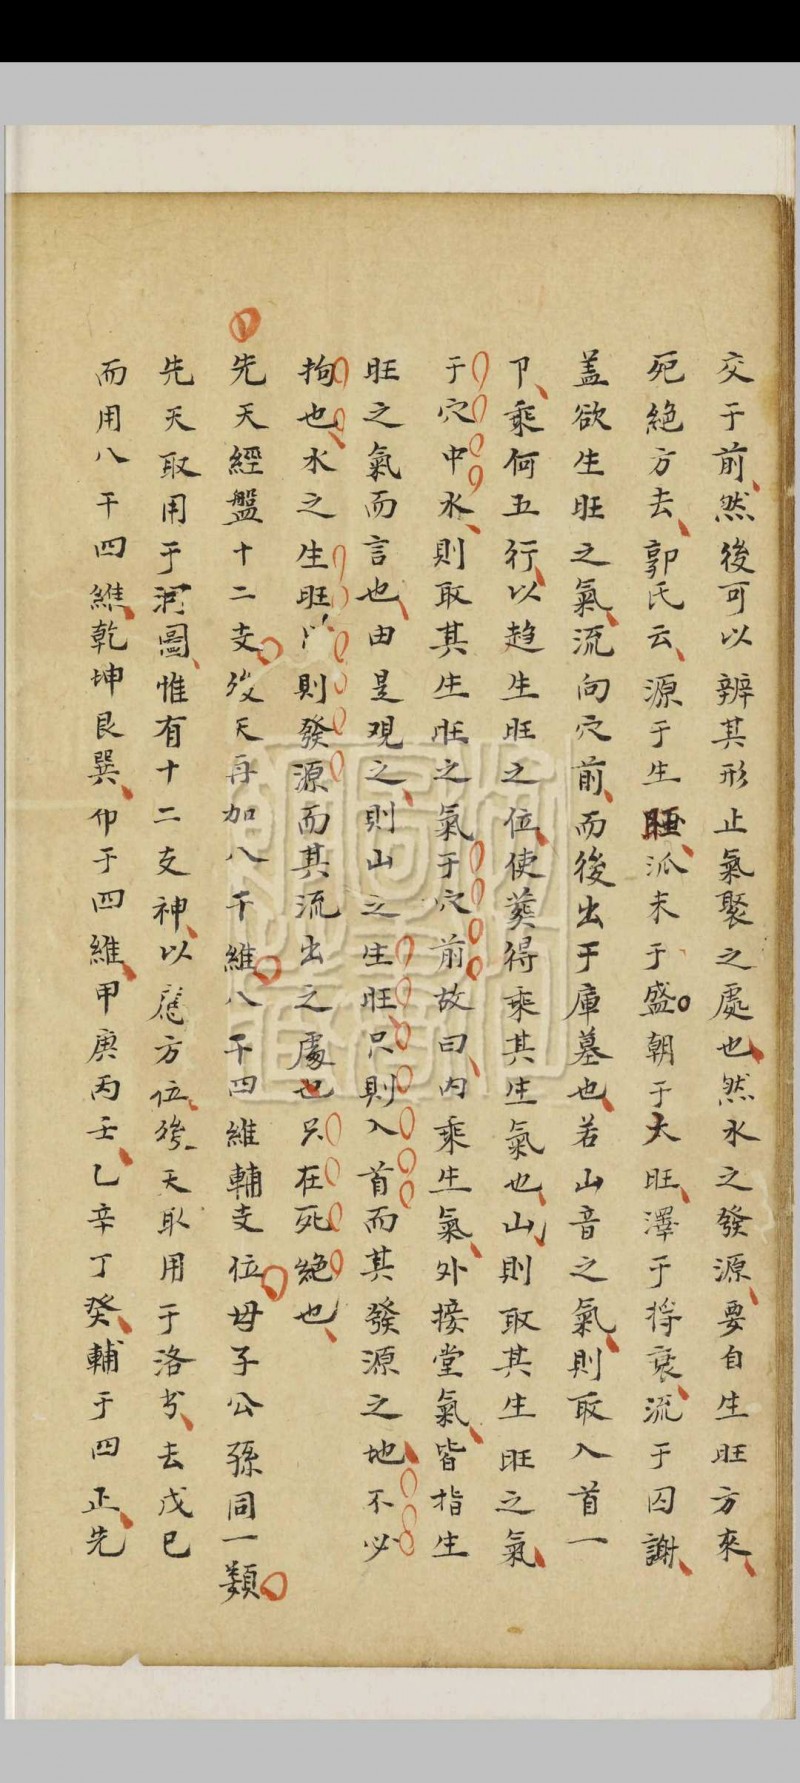 交于前然後可以辨其形止氣聚之處也然水之發源要自生旺方來
死絕方去郭氏云源于生旺派未于盛朝于大旺澤于將衰流于囚謝
盖欲生旺之氣流向穴前而後出于庫墓也若山音之氣則取入首一
卩乘何五行以趋生旺之位使葬得乘其生氣也山則取其生旺之氣
于穴中水則取其生旺之氣于穴前故曰内乘生氣外接堂氣皆指生
旺之氣而言也由是观之則山之生旺只則入首而其發源之地不必
拘也水之生旺则發源而其流出之處也只在死絕也
先天經盤十二支後天再加八千維八干四維輔支位母子公孫同一類
先天取用于河圖惟有十二支神以應方位後天取用于洛书去戊己
而用八干四維乾坤艮巽仰于四維甲庚丙壬乙辛丁癸輔于四正先